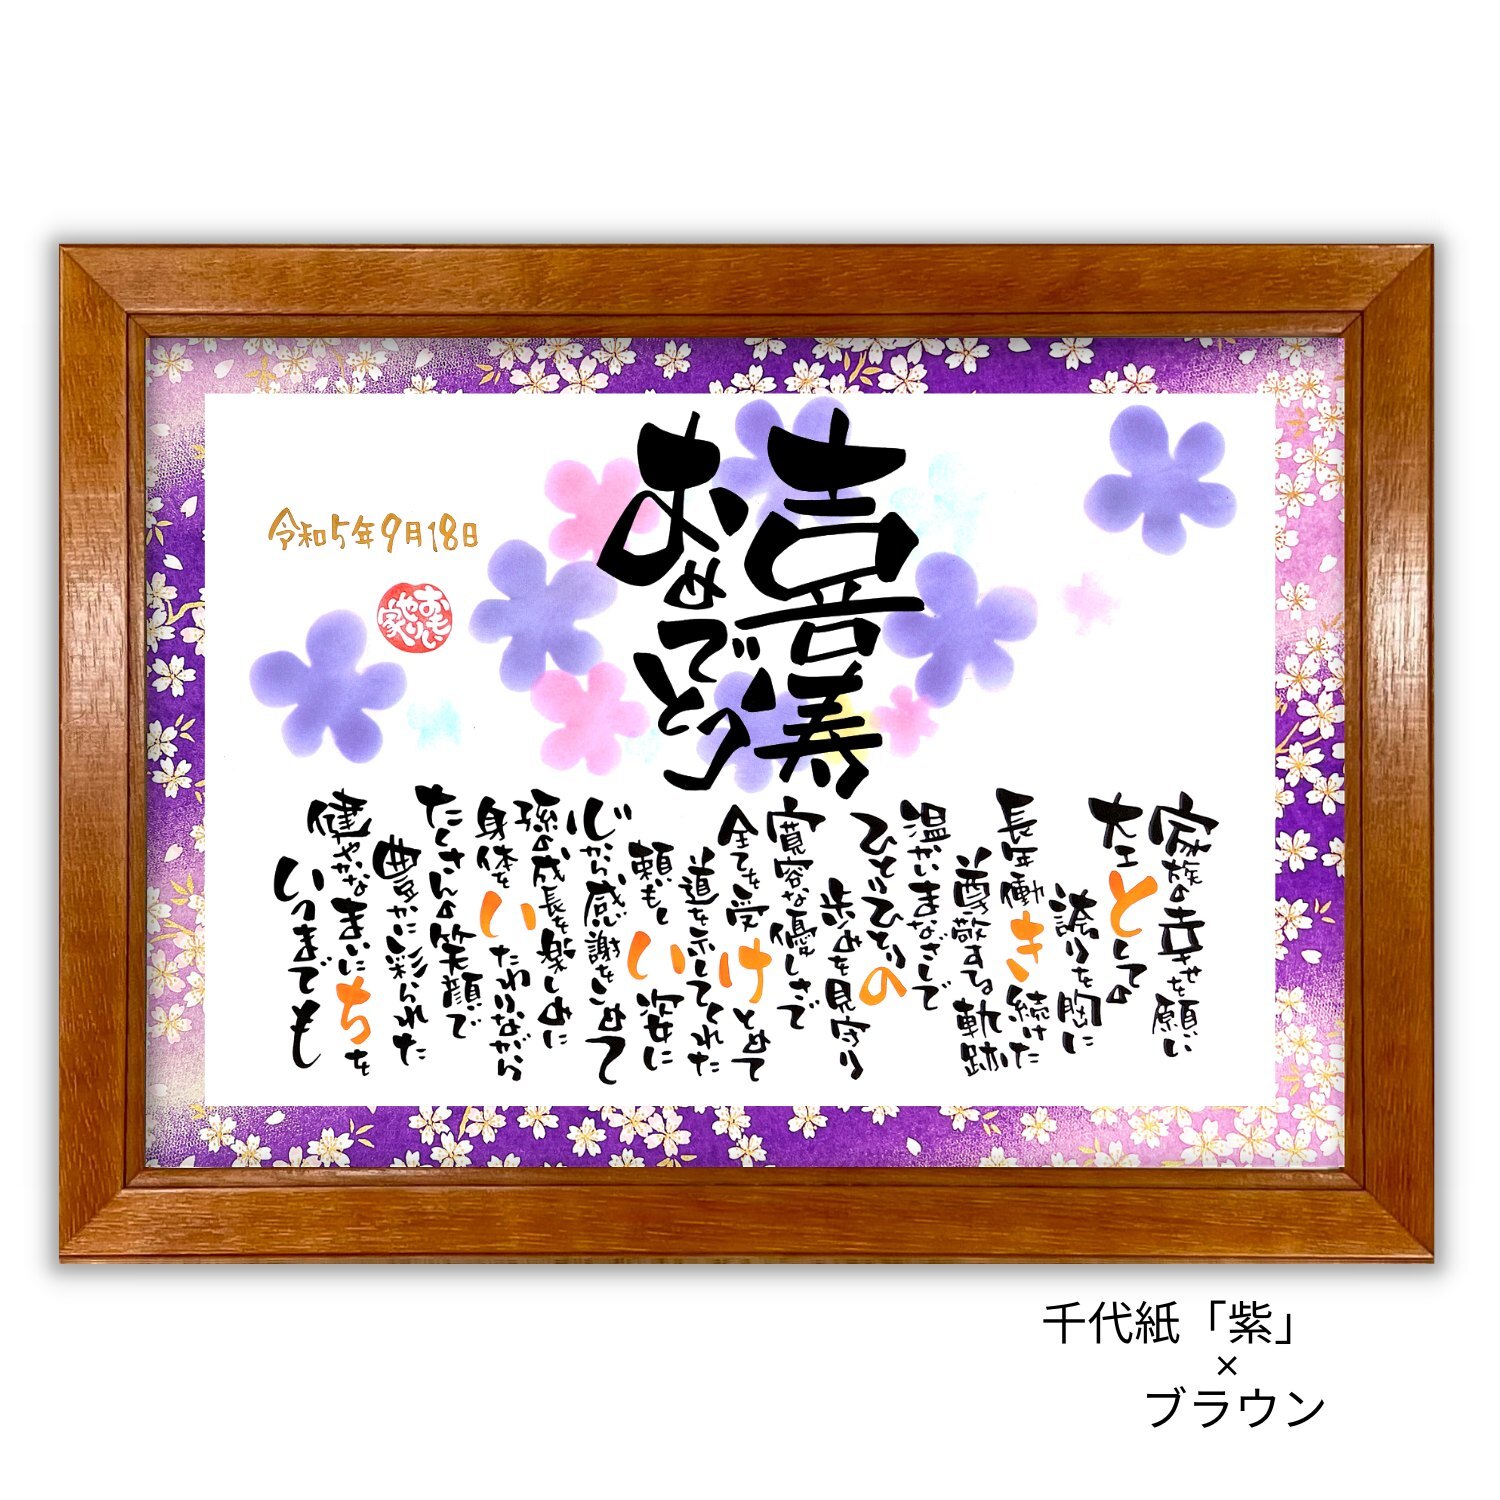 喜寿
おめでとう
家族の幸せを願い
大工としての
誇りを胸に
長年働き続けた
尊敬する軌跡
温かいまなざしで
ひとりひとりの
歩みを見守り
寛容な優しさで
全てを受けとめて
道を示してくれた
頼もしい姿に
心から感謝をこめて
孫の成長を楽しみに
身体をいたわりながら
たくさんの笑顔で
豊かに彩られた
健やかなまいにちを
いつまでも
令和5年9月18日
おもいやり家
千代紙「紫」
×
ブラウン